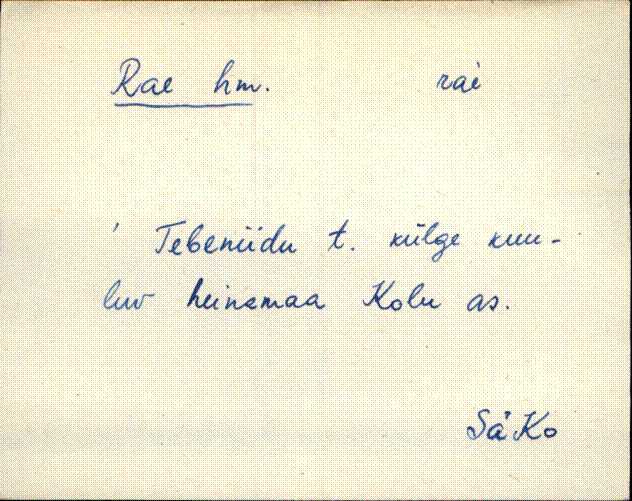 Rae hm. rai̮e
' Tebeniidu t. külge kuu-
luv heinamaa Kolu as.
SäKo